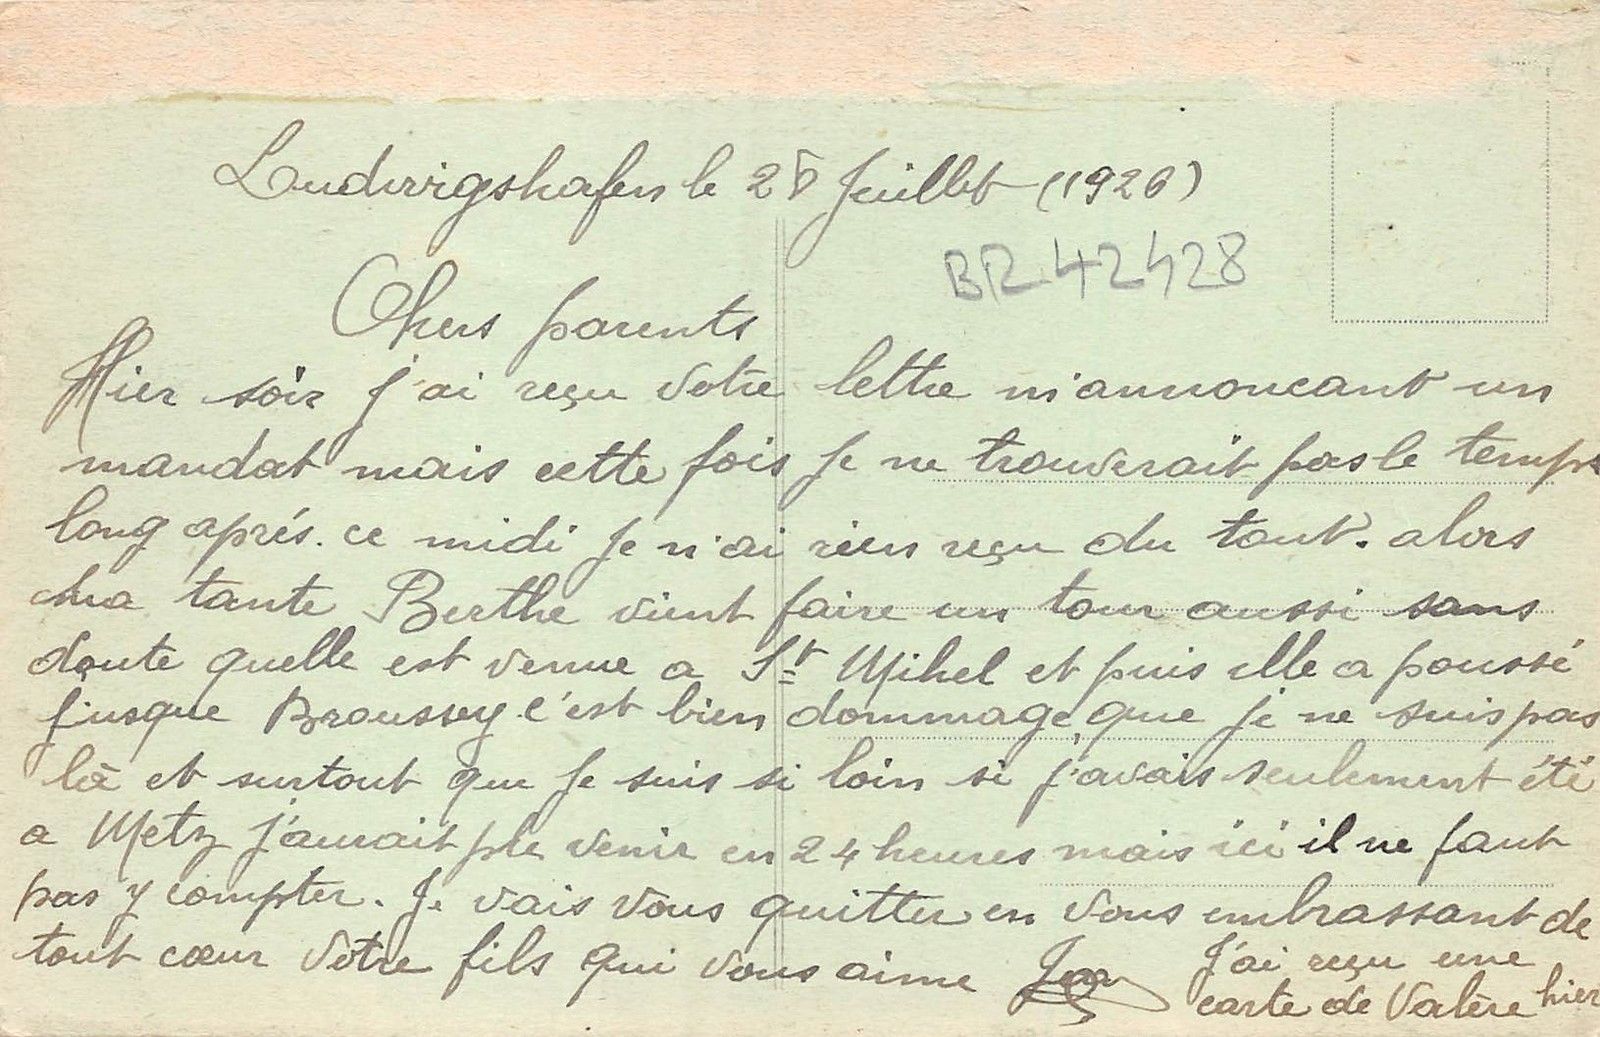 Ludwigshafen le 28 Juillet (1926)
BR 42428
Chers parents
Hier soir j'ai reçu votre lettre m'annoncant un
mandat mais cette fois je ne trouverait pas le temps
long aprés. ce midi je n'ai rien reçu du tout. alors
ma tante Berthe vient faire un tour aussi sans
doute quelle est venue a St Mihel et puis elle a poussé
jusque Broussey c'est bien dommage que je ne suis pas
là et surtout que je suis si loin si j'avais seulement été
a Metz j'aurait venir en 24 heures mais ici il ne faut
pas y compter. Je vais vous quitter en vous embrassant de
tout cœur votre fils qui vous aime
J'ai reçu une
carte de Valère hier